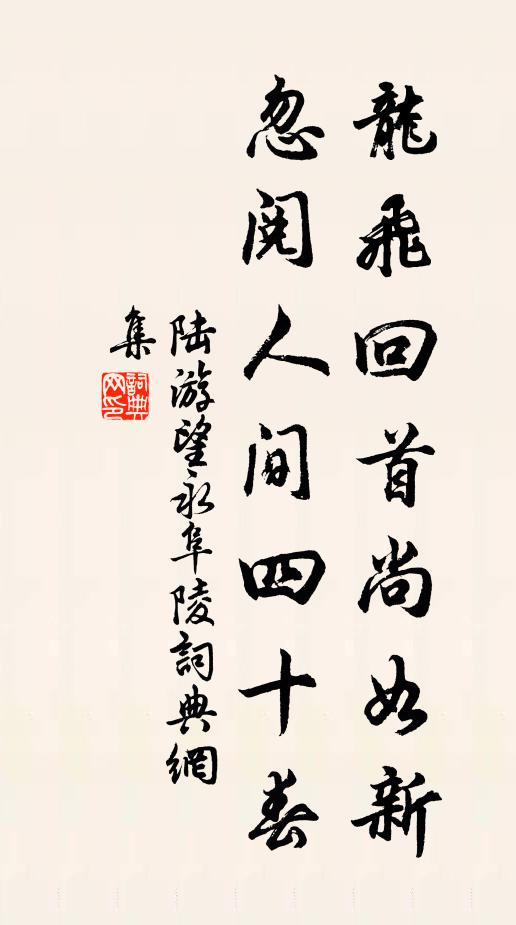 龍飛回首尚如新
忽閱人間四十春
陆游望永阜陵詞典網
集
詞典
网印